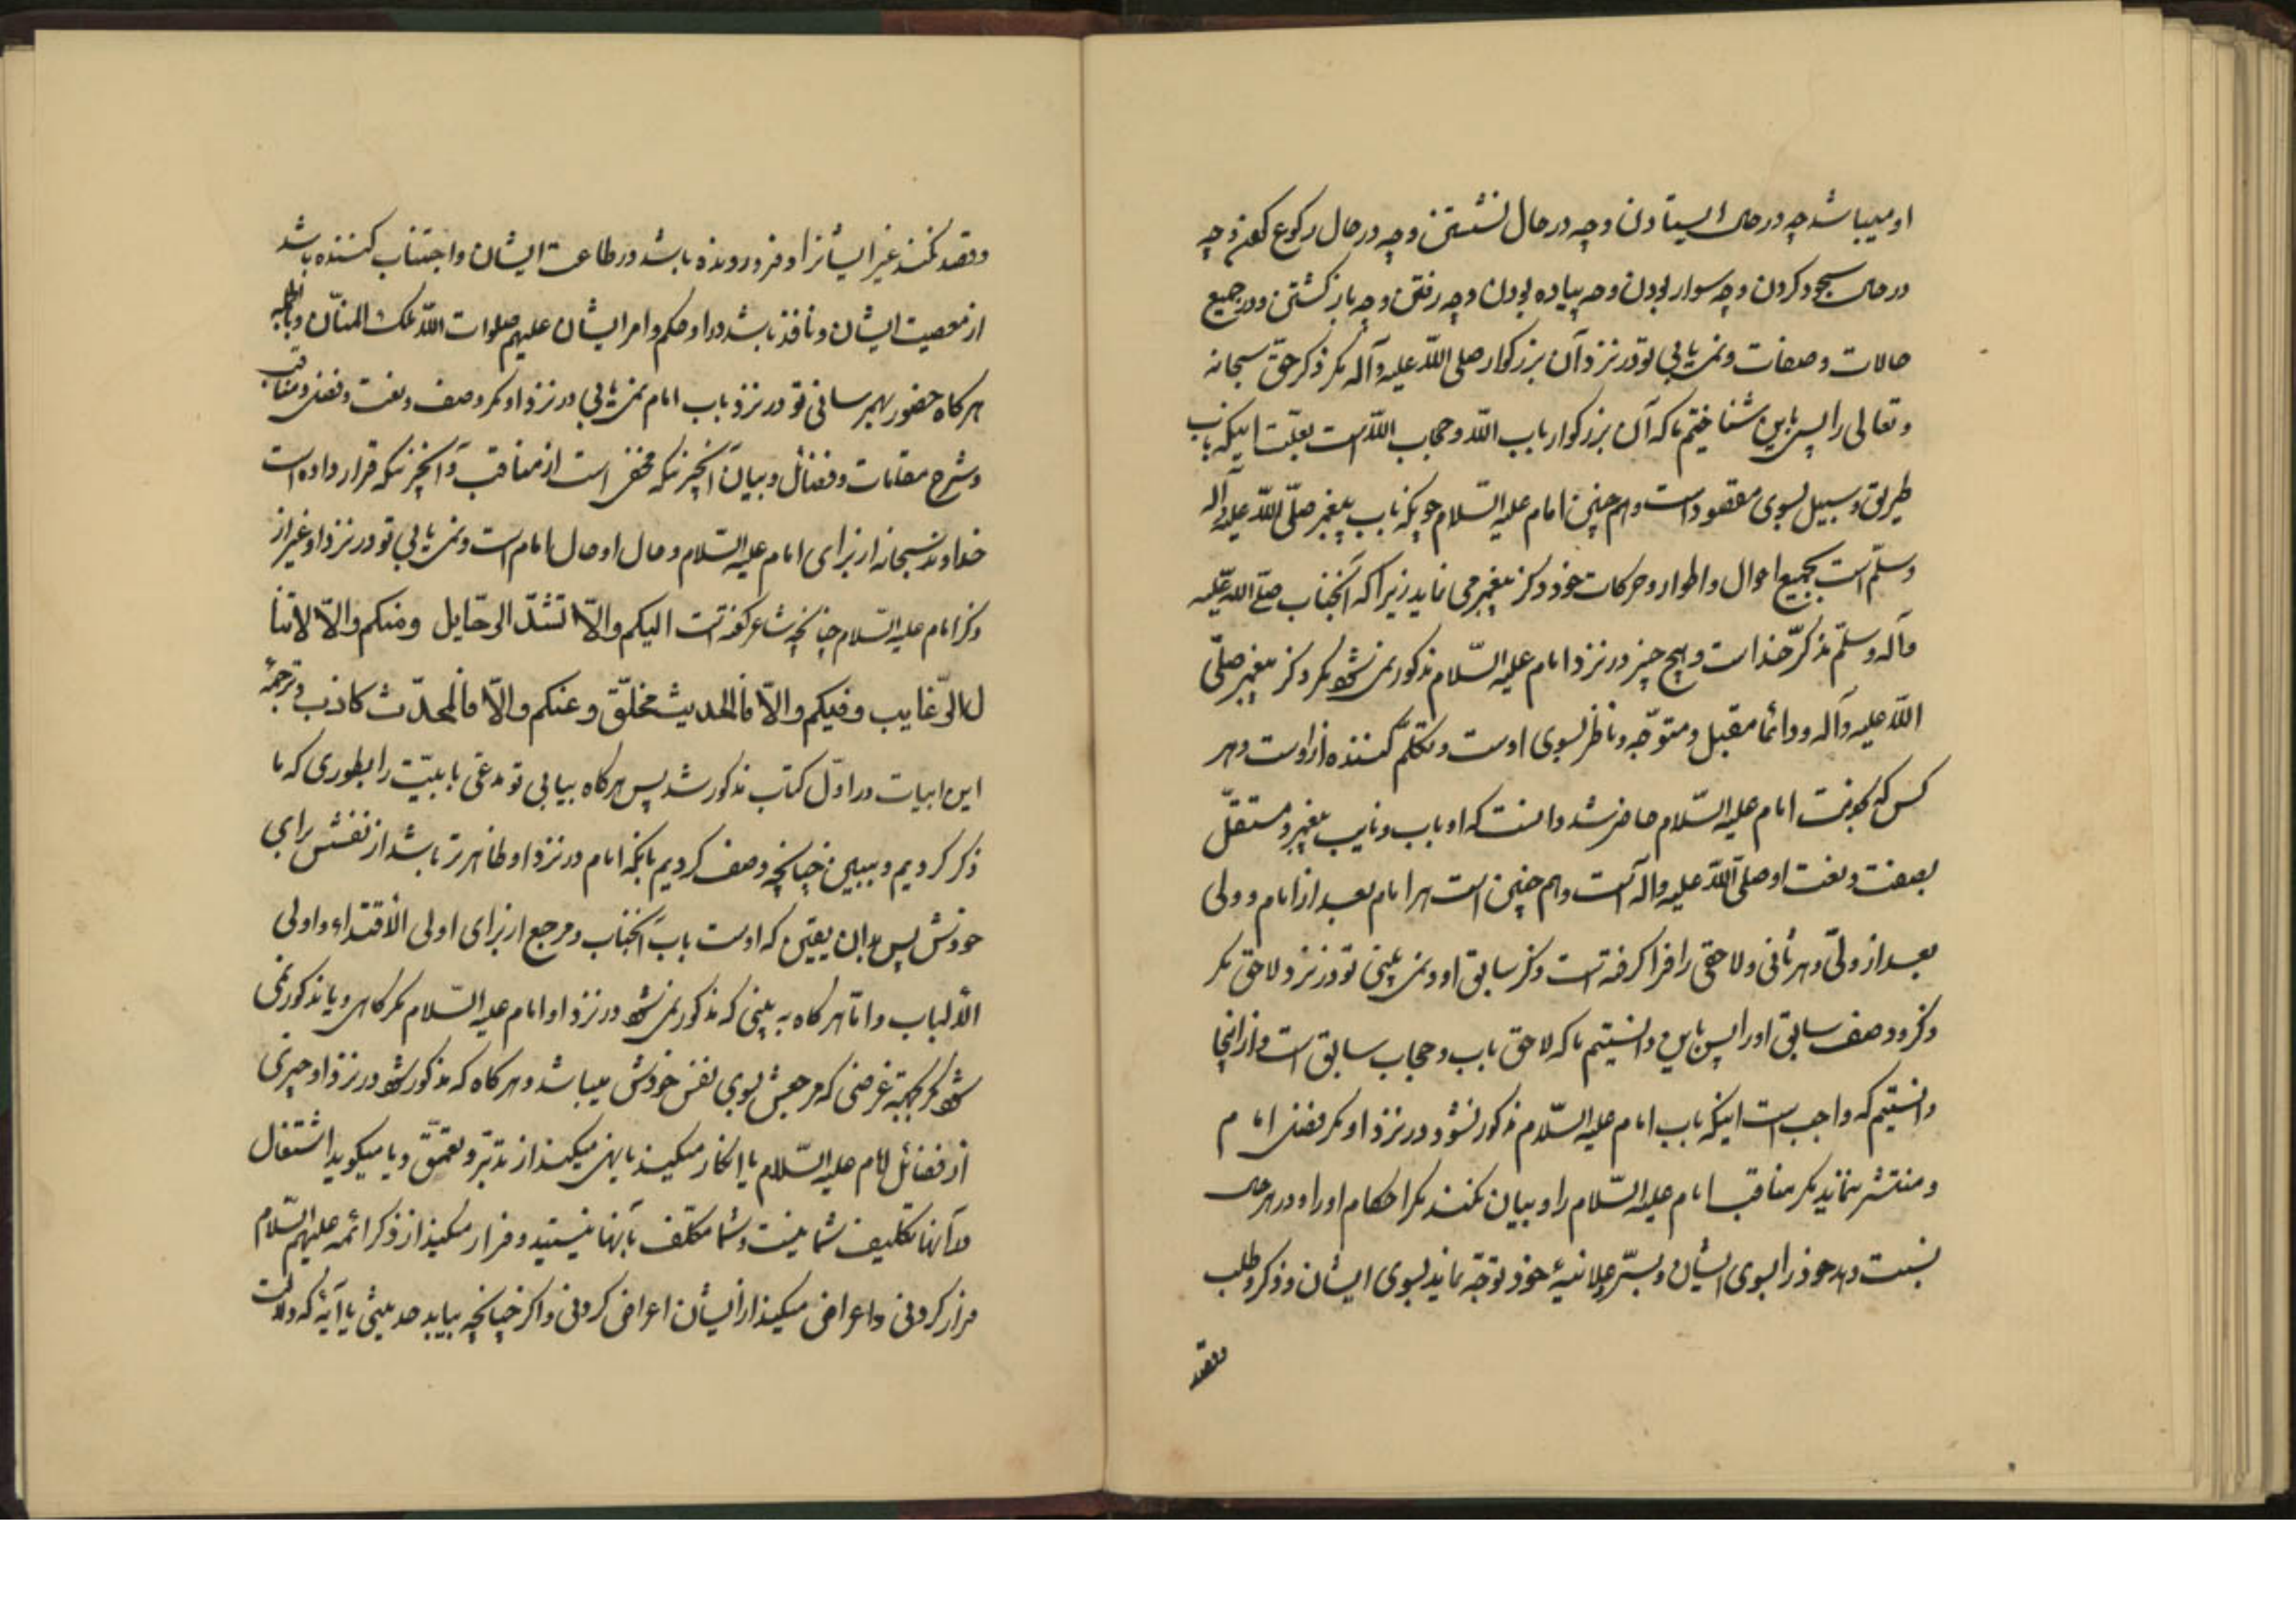 او میباشد چه در حال ایستادن و چه در حال نشستن و چه در حال رکوع کردن و چه
در حال سجود کردن و چه سوار بودن و چه پیاده بودن و چه رفتن و چه بازکشتن و در جمیع
حالات و صفات و نمی یابی تو در نزد آن بزرکوار صلی اللّه علیه و آله مکر ذکر حقّ سبحانه
و تعالی را پس باین شناختیم ما که آن بزرکوار باب اللّه و حجاب اللّه است بعلّت اینکه باب
طریق و سبیل بسوی مقصود است و هم چنین امام علیه السّلام چونکه باب پیغمبر صلّی اللّه علیه و آله
و سلّم است بجمیع احوال و اطوار و حرکات خود ذکر پیغمبر می نماید زیرا که آنجناب صلّی اللّه علیه
و آله و سلّم مذکّر خدا است و هیچ چیز در نزد امام علیه السّلام مذکور نمی شود مکر ذکر پیغمبر صلّی
اللّه علیه و آله و دائما مقبل و متوّجه و ناظر بسوی اوست و تکلّم کننده از اوست و هر
کس که بخدمت امام علیه السّلام حاضر شد دانست که او باب و نایب پیغمبر و مستقلّ
بصفت و نعت او صلّی اللّه علیه و اله است و هم چنین است هر امام بعد از امام و ولی
بعد از ولّی و هر ثانی و لاحقی را فرا کرفته است ذکر سابق او و نمی بینی تو در نزد لاحق مکر
ذکر و وصف سابق او را پس باین دانستیم ما که لاحق باب و حجاب سابق است و از اینجا
دانستیم که واجب است اینکه باب امام علیه السّلام مذکور نشود در نزد او مکر فضل امام
و منتشر ننماید مکر مناقب امام علیه السّلام را و بیان نکند مکر احکام او را و در هر حال
نسبت دهد خود را بسوی ایشان و بسّر و علانیهٔ خود توجّه نماید بسوی ایشان و ذکر و طلب
و قصد
و قصد نکند غیر ایشانرا و فرو رونده باشد در طاعت ایشان و اجتناب کننده باشد
از معصیت ایشان و نافذ باشد در او حکم و امر ایشان علیهم صلوات اللّه الملک المنّان و بالجمله
هر کاه حضور بهم رسانی تو در نزد باب امام نمی یابی در نزد او مکر وصف و نعت و فضل و مناقب
و شرح مقامات و فضائل و بیان آنچیزیکه مخفی است از مناقب و آنچیزیکه قرار داده است
خداوند سبحانه از برای امام علیه السّلام و حال او حال امام است و نمی یابی تو در نزد او غیر از
ذکر امام علیه السّلام چنانچه شاعر کفته است الیکم والّا لا تشدّ الرّحایل ومنکم والّا لا تنا
ل الرّغایب وفیکم والّا فالحدیث مخلّق وعنکم والّا فالمحدّث کاذب و ترجمهٔ
این ابیات در اوّل کتاب مذکور شد پس هر کاه بیابی تو مدعّی بابیّت را بطوری که ما
ذکر کردیم و ببینی چنانچه وصف کردیم بآنکه امام در نزد او ظاهر تر باشد از نفسش برای
خودش پس بدان یقین که اوست باب آنجناب و مرجع از برای اولی الأفئده و اولی
الألباب و امّا هر کاه به بینی که مذکور نمی شود در نزد او امام علیه السّلام مکر کاهی و یا مذکور نمی
شود مکر بجهة غرضی که مرجعش بسوی نفس خودش میباشد و هر کاه که مذکور شود در نزد او چیزی
از فضائل امام علیه السّلام یا انکار میکند یا نهی میکند از تدبّر و تعمّق و یا میکوید اشتغال
بآنها تکلیف شما نیست و شما مکلّف بآنها نیستید و فرار میکند از ذکر ائمه علیهم السّلام
فرار کردنی و اعراض میکند از ایشان اعراض کردنی و اکر چنانچه بیابد حدیثی یا آیهٔ که دلالت